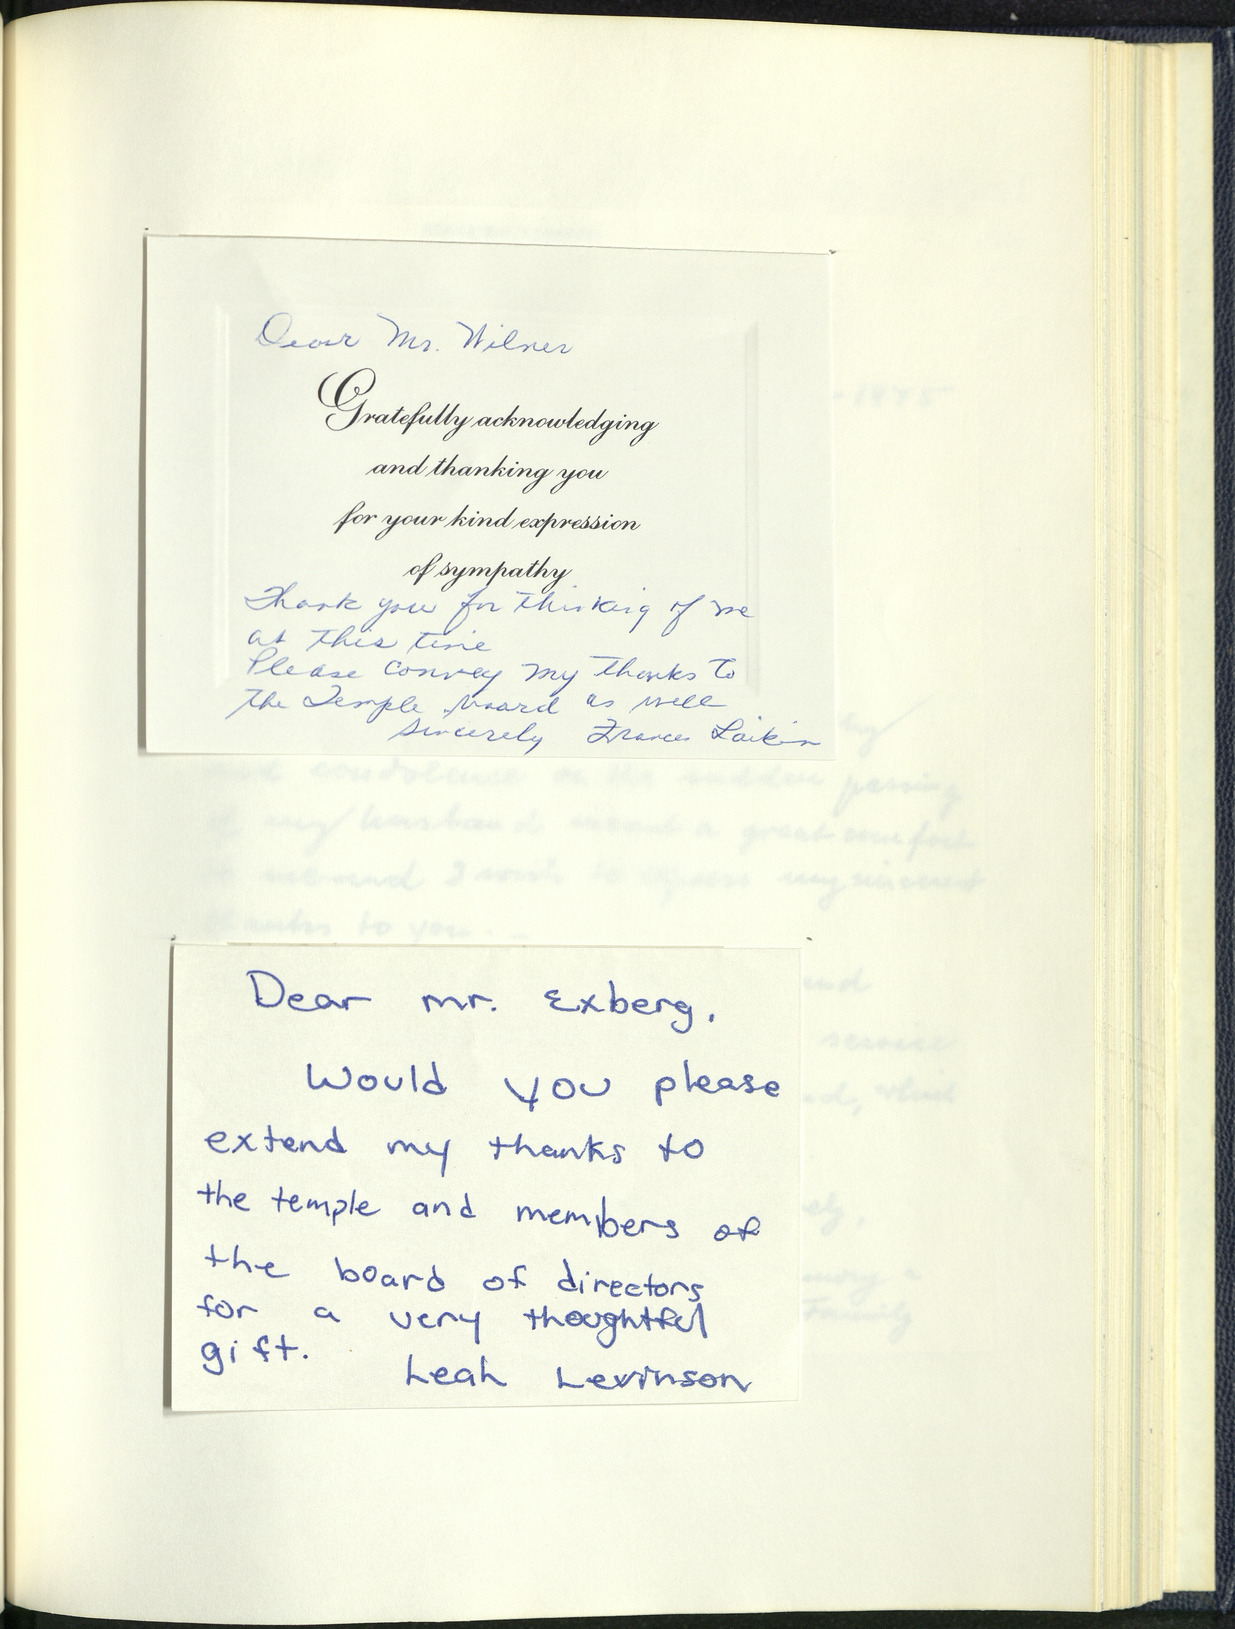 Dear Mr. Wilner
Gratefully acknowledging
and thanking you
for your kind expression
of sympathy
Thank you for thinking of me
at this time
Please convey my thanks to
the Temple board as well
Sincerely Frances Laikin
Dear mr. Exberg,
Would you please
extend my thanks to
the temple and members of
the board of directors
for a very thoughtful
gift.
Leah Levinson